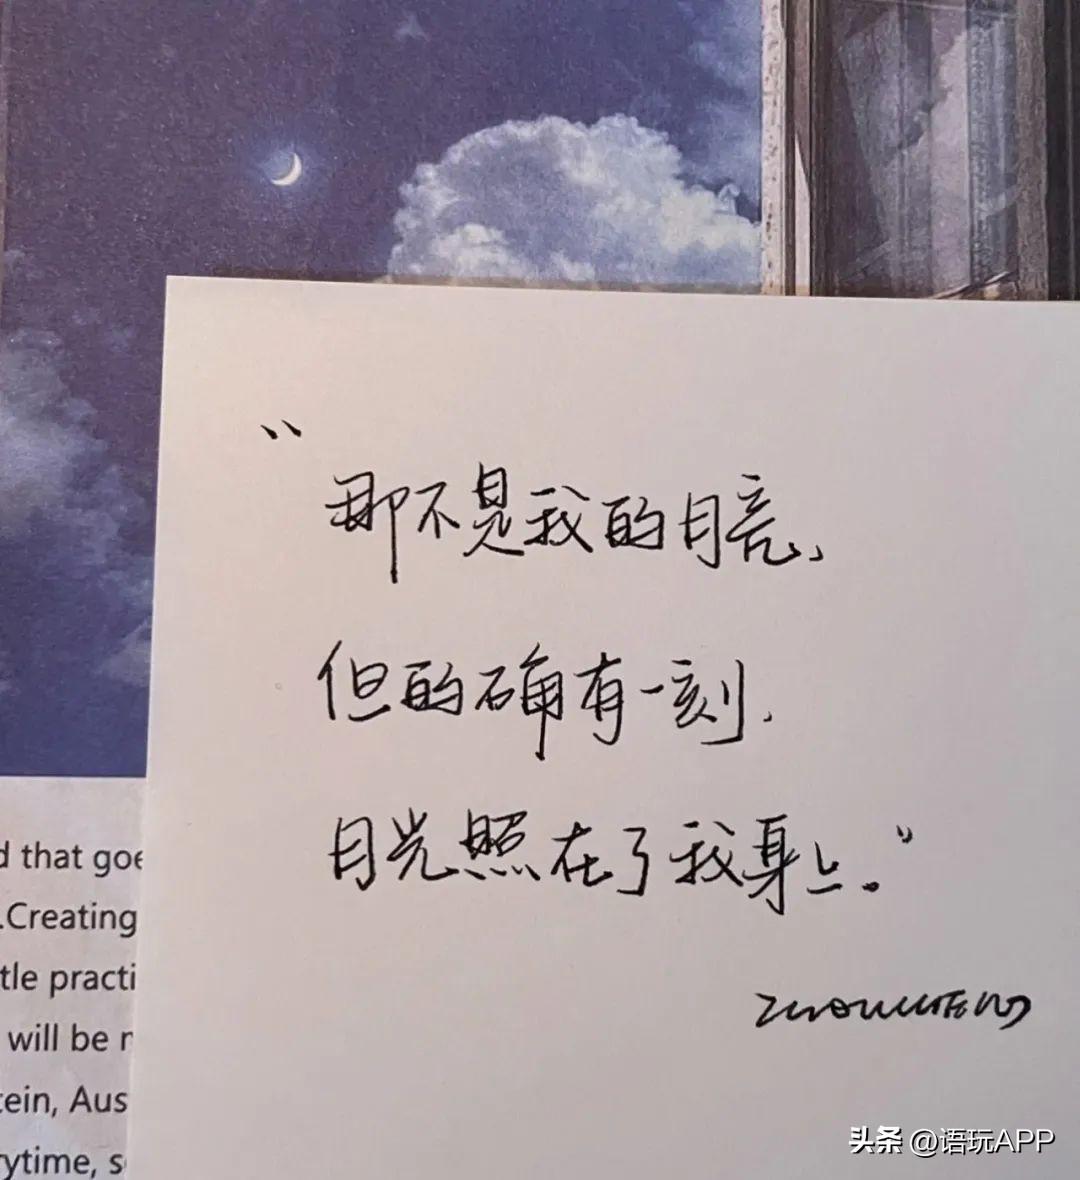 “
那不是我的月亮、
但的确有一刻.
月光照在了我身上。”
d that goe
.Creating
tle practi
will be r
tein, Aus
rytime, s
头条 @语玩APP